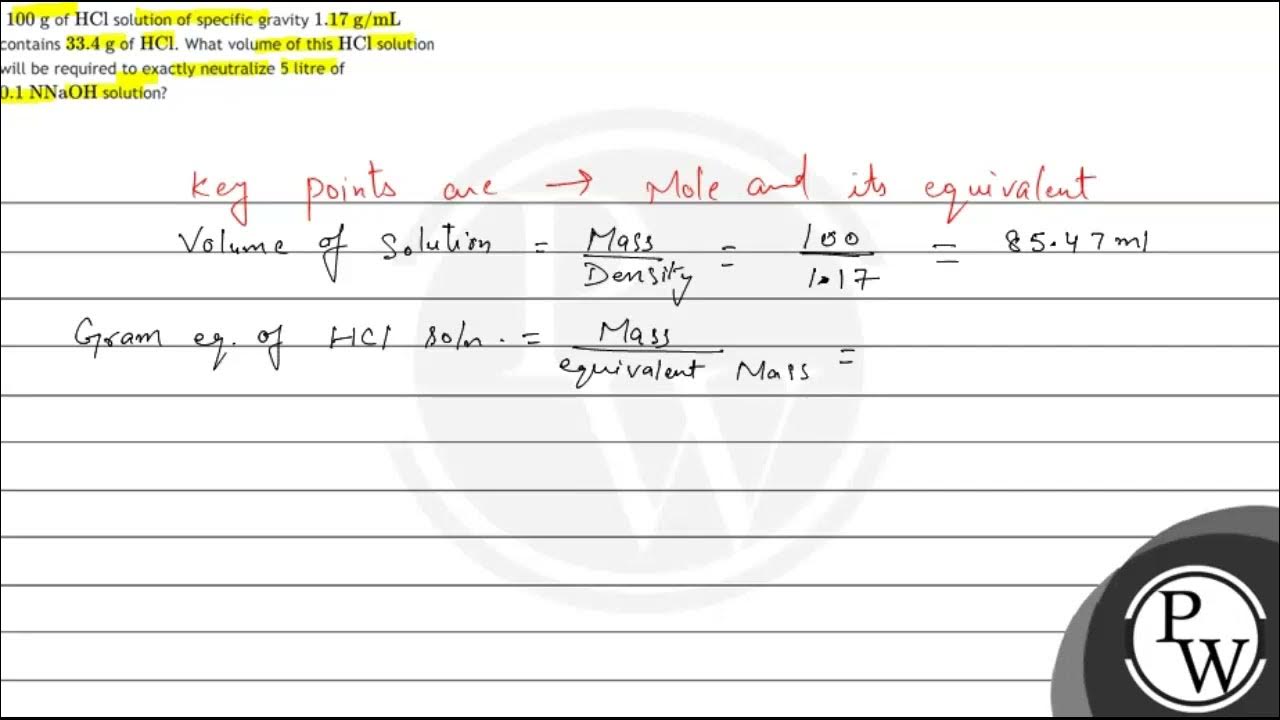 100 g of HCl solution of specific gravity 1.17 g/mL
contains 33.4 g of HCl. What volume of this HCl solution
will be required to exactly neutralize 5 litre of
0.1 NNaOH solution?
Key points are → Mole and its equivalent
Volume of Solution = Mass / Density = 100 / 1.17 = 85.47 ml
Gram eq. of HCl soln. = Mass / equivalent Mass =
P
W
P
W